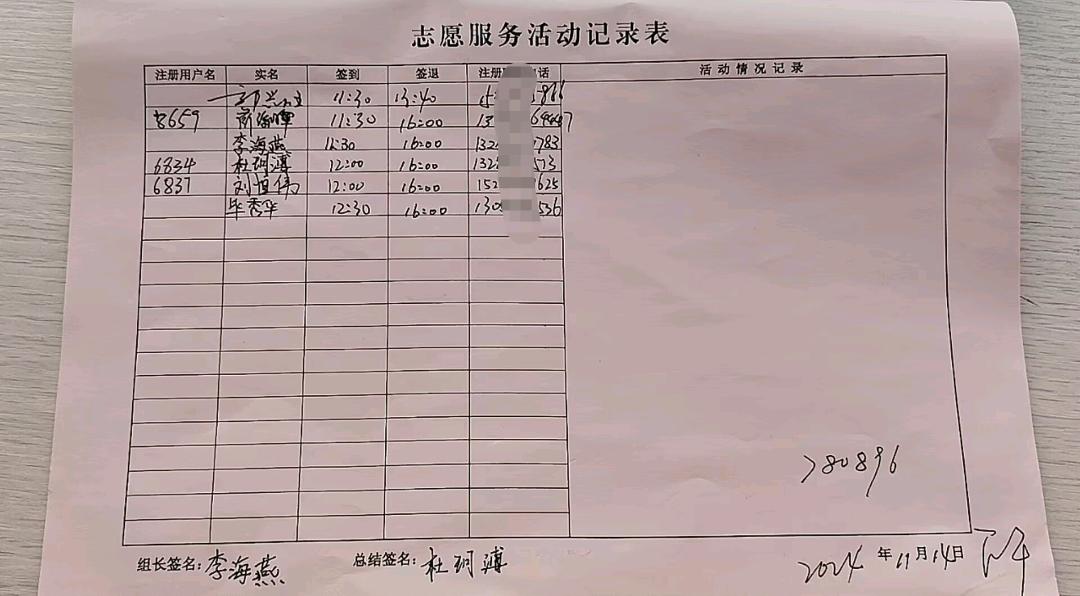 志愿服务活动记录表
注册用户名 实名 签到 签退 注册 电话 活动情况记录
11:30 13:40 15 866
8659 11:30 16:00 13
李海燕 11:30 16:00 132 783
6834 杜珂溥 12:00 16:00 132 573
6837 刘恒伟 12:00 16:00 152 625
毕秀华 12:30 16:00 130 536
780896
组长签名: 李海燕 总结签名: 杜珂溥 2024 年 11 月 14 日 下午